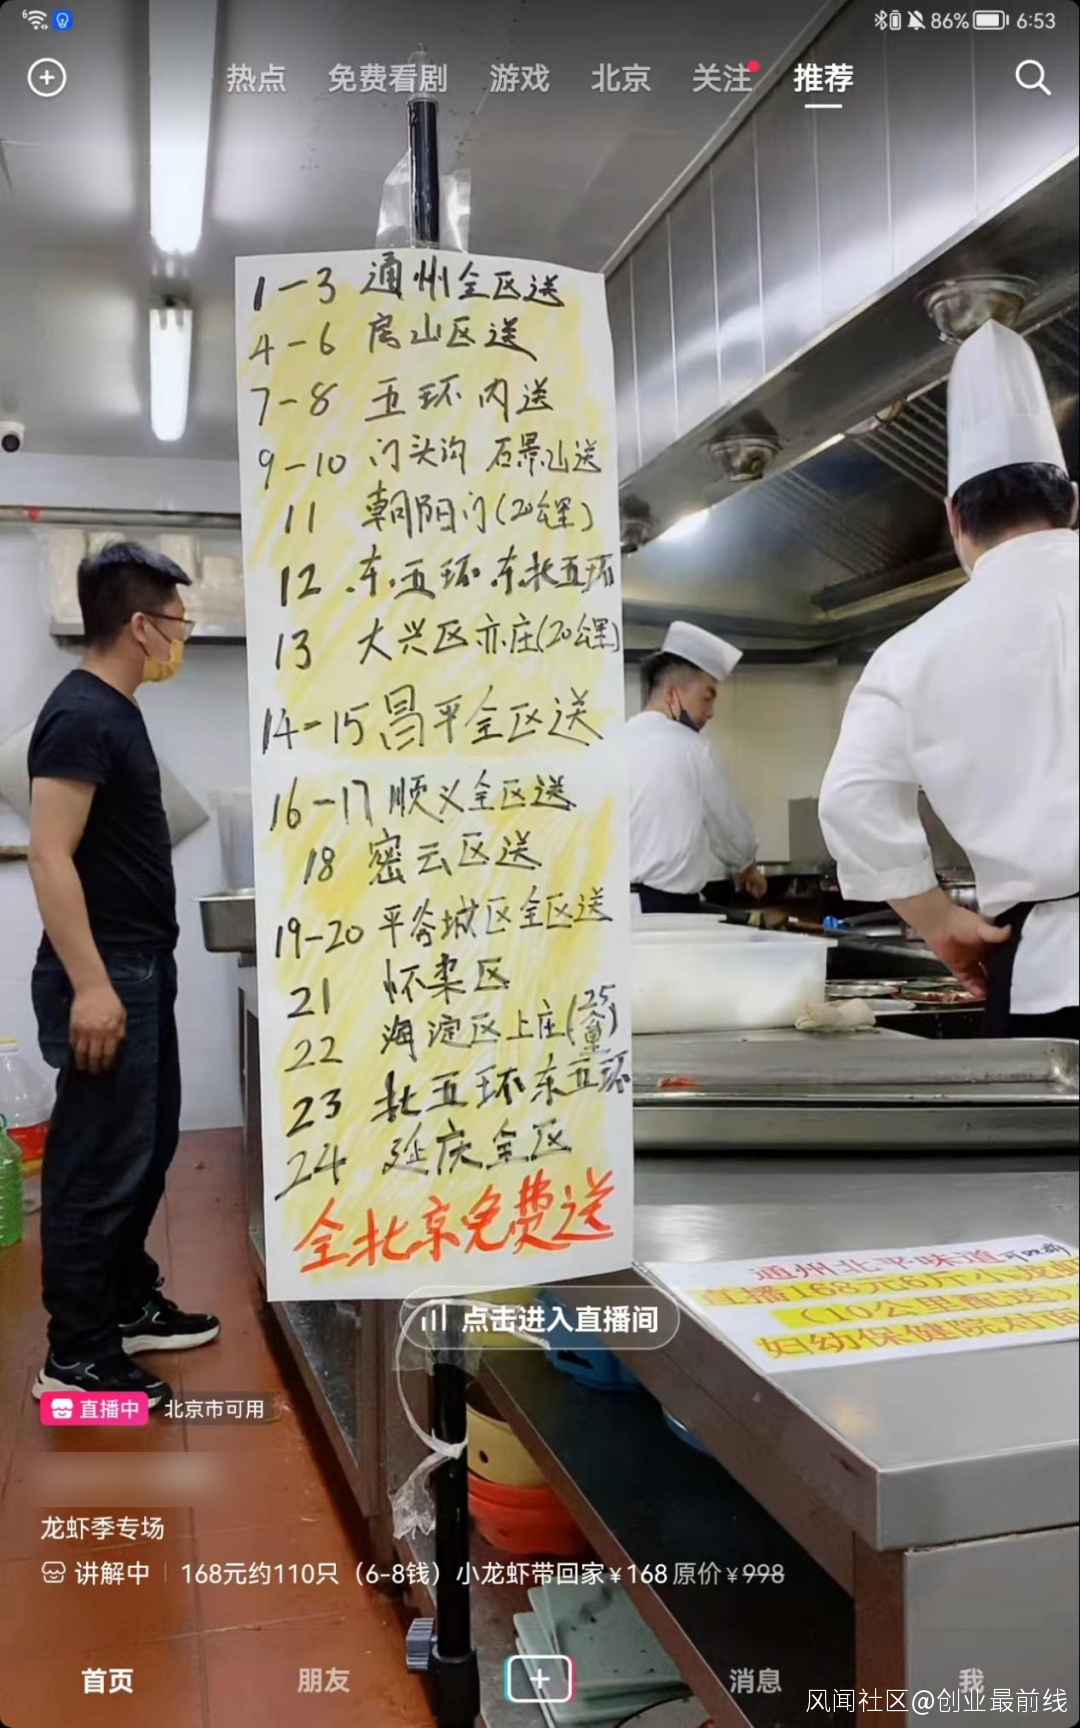 6 86% 6:53
热点 免费看剧 游戏 北京 关注 推荐
1-3 通州全区送
4-6 房山区送
7-8 五环内送
9-10 门头沟 石景山送
11 朝阳门(20公里)
12 东五环 东北五环
13 大兴区亦庄(20公里)
14-15 昌平全区送
16-17 顺义全区送
18 密云区送
19-20 平谷城区全区送
21 怀柔区
22 海淀区上庄(25公里)
23 北五环东五环
24 延庆全区
全北京免费送
通州北平味道可吹嘘
直播168元6斤小龙虾
(10公里配送)
妇幼保健院对面
点击进入直播间
直播中 北京市可用
龙虾季专场
讲解中 168元约110只（6-8钱）小龙虾带回家¥168 原价¥998
首页 朋友 消息 我
风闻社区@创业最前线